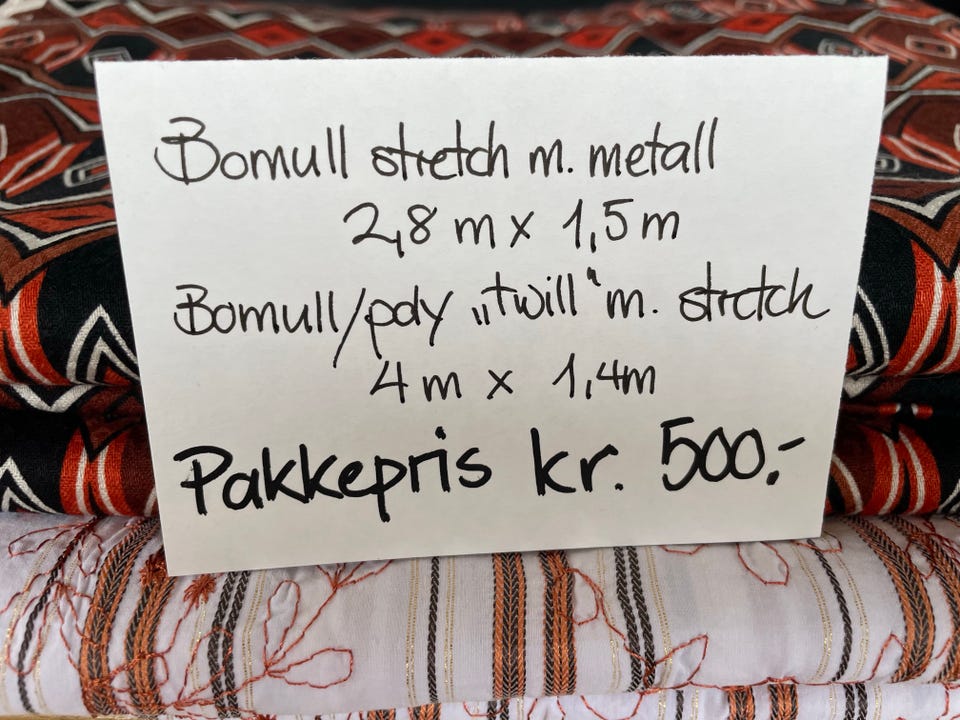 Bomull stretch m. metall
2,8 m x 1,5 m
Bomull/poly „twill“ m. stretch
4 m x 1,4m
Pakkepris kr. 500,-